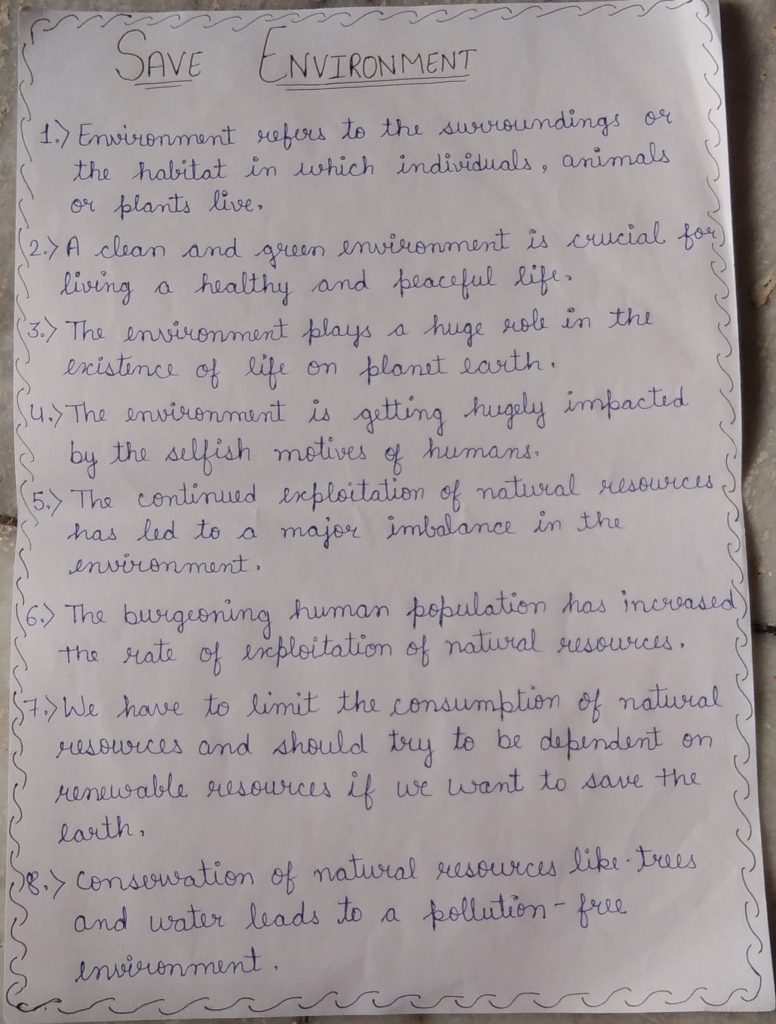 SAVE ENVIRONMENT
1.) Environment refers to the surroundings or
the habitat in which individuals, animals
or plants live.
2.) A clean and green environment is crucial for
living a healthy and peaceful life.
3.) The environment plays a huge role in the
existence of life on planet earth.
4.) The environment is getting hugely impacted
by the selfish motives of humans.
5.) The continued exploitation of natural resources
has led to a major imbalance in the
environment.
6.) The burgeoning human population has increased
the rate of exploitation of natural resources.
7.) We have to limit the consumption of natural
resources and should try to be dependent on
renewable resources if we want to save the
earth.
8.) Conservation of natural resources like trees
and water leads to a pollution-free
environment.